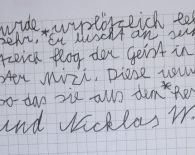 wurde, *urplötzlich
sehr. Er wischt an sei
gleich flog der Geist in
ster Mizi. Diese
so das sie aus dem *
und Nicklas W.